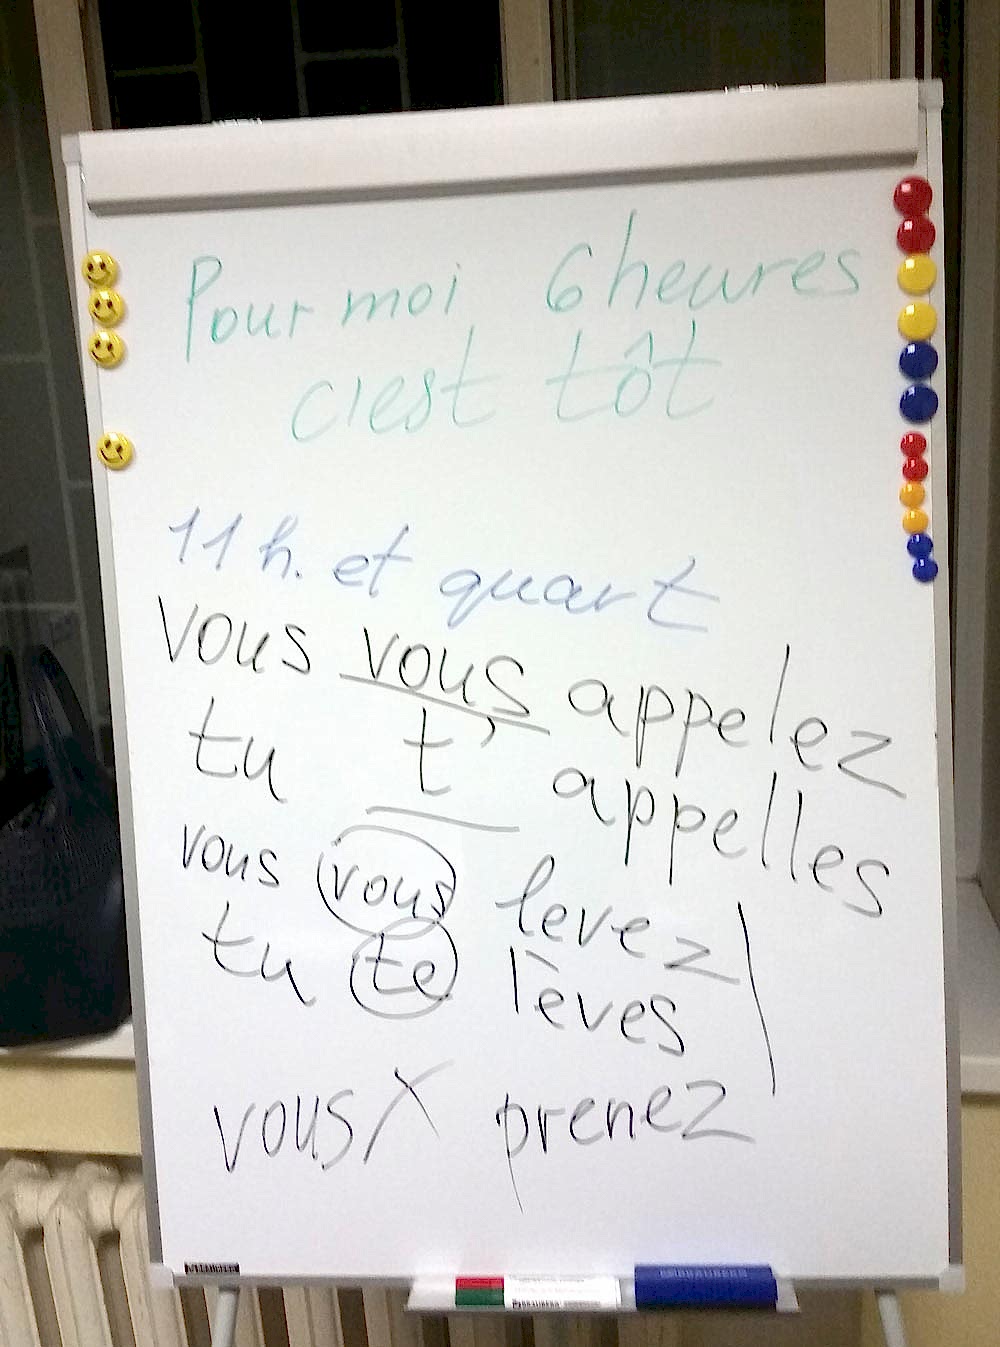 Pour moi 6 heures
c'est tôt
11 h. et quart
vous vous appelez
tu t' appelles
vous vous levez
tu te lèves
vous X prenez
BRAUBERG
BRAUBERG
BRAUBERG